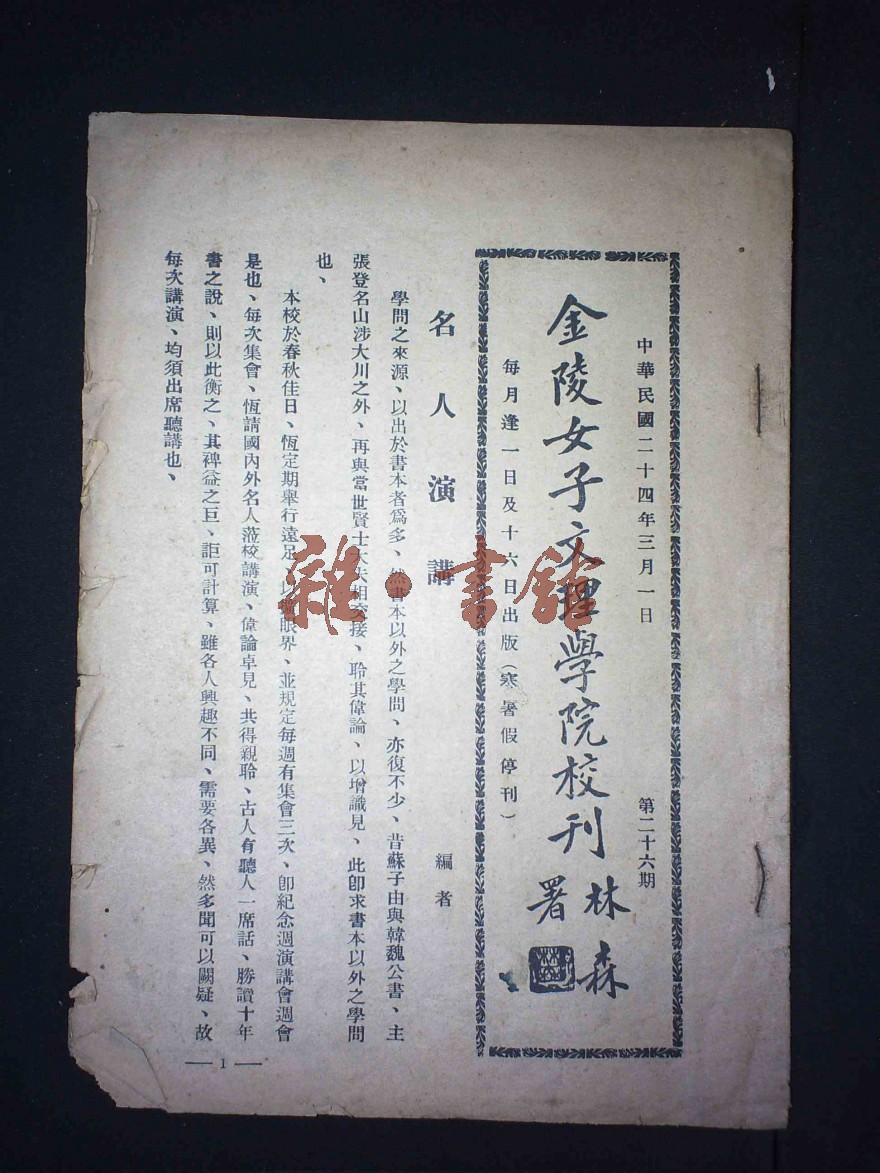 中華民國二十四年三月一日　第二十六期
金陵女子文理學院校刊
林森
署
每月逢一日及十六日出版（寒暑假停刊）
名人演講　編者
學問之來源、以出於書本者爲多、然書本以外之學問、亦復不少、昔蘇子由與韓魏公書、主
張登名山涉大川之外、再與當世賢士大夫相交接、聆其偉論、以增識見、此卽求書本以外之學問
也、
本校於春秋佳日、恆定期舉行遠足、以眼界、並規定每週有集會三次、卽紀念週演講會週會
是也、每次集會、恆請國內外名人蒞校講演、偉論卓見、共得親聆、古人有聽人一席話、勝讀十年
書之說、則以此衡之、其裨益之巨、詎可計算、雖各人興趣不同、需要各異、然多聞可以闕疑、故
每次講演、均須出席聽講也、
— 1 —
雜·書館